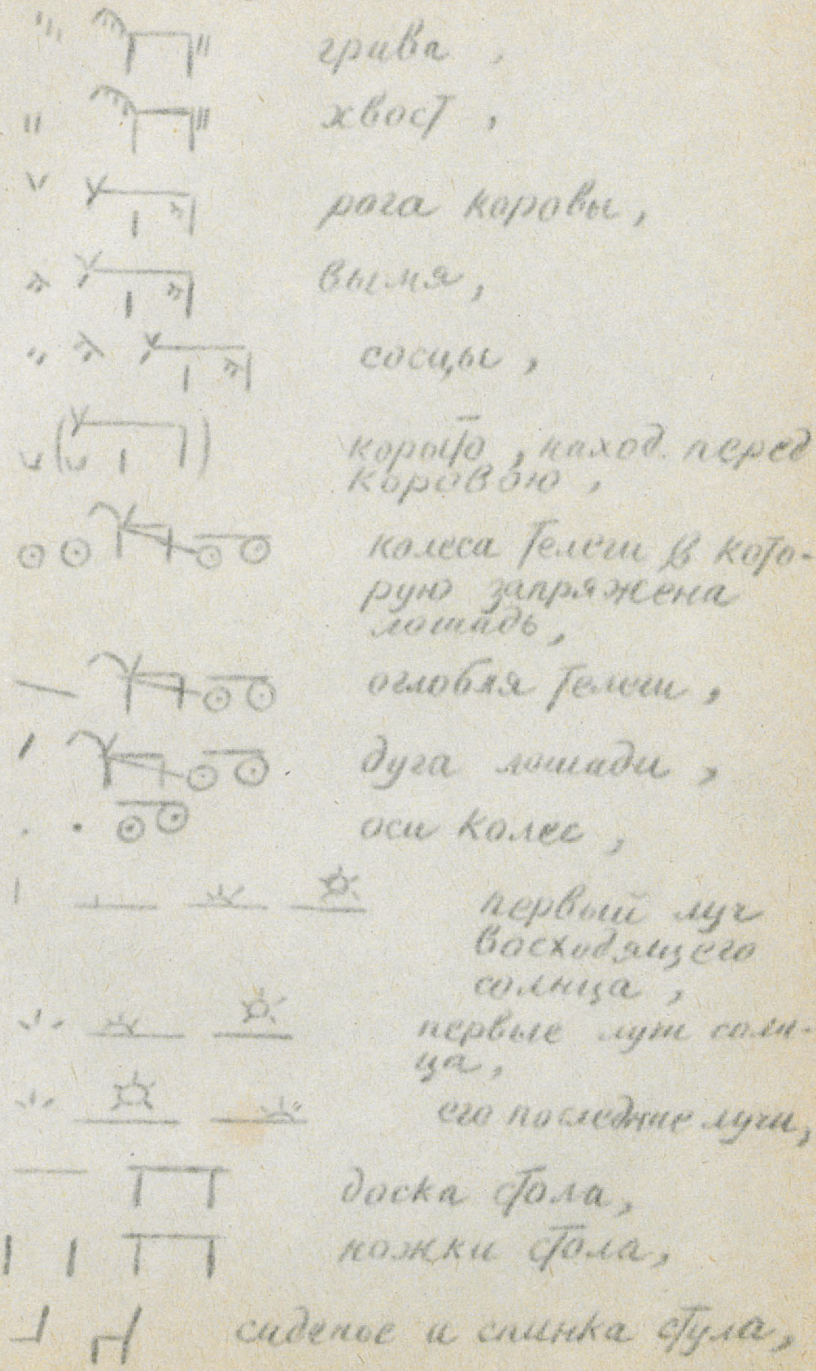 грива,
хвост,
рога коровы,
вымя,
сосцы,
корыто, наход. перед
коровою,
колеса телеги в кото-
рую запряжена
лошадь,
оглобля телеги,
дуга лошади,
оси колес,
первый луч
восходящего
солнца,
первые лучи солн-
ца,
его последние лучи,
доска стола,
ножки стола,
сиденье и спинка стула,